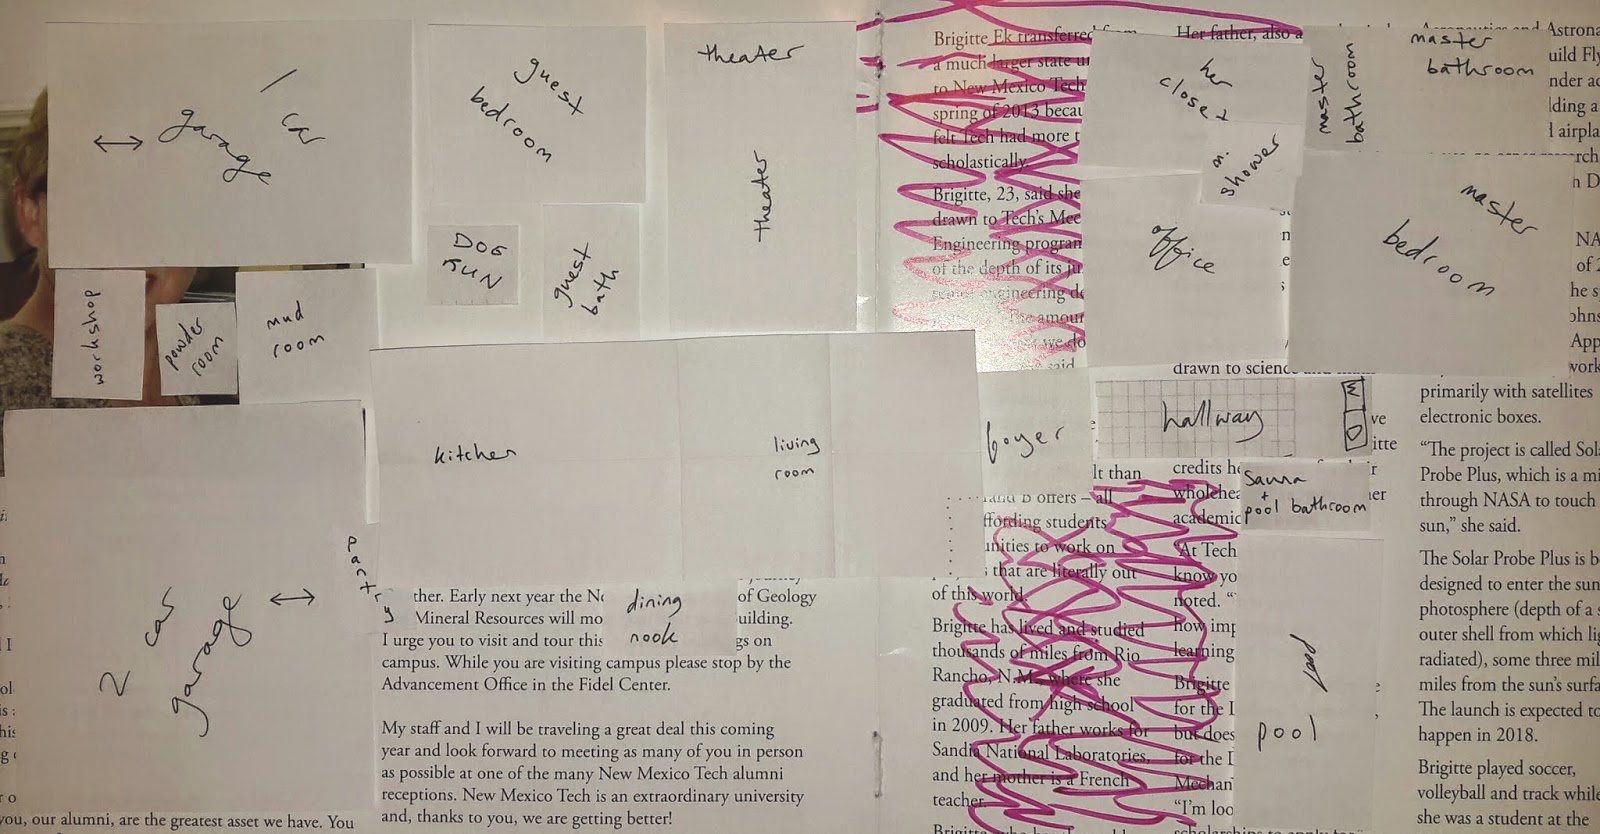 1 car
garage
guest
bedroom
theater
theater
her
closet
master
bathroom
master
bathroom
m.
shower
DOG
RUN
guest
bath
office
master
bedroom
workshop
powder
room
mud
room
kitchen
living
room
foyer
hallway
W
D
sauna
+
pool bathroom
pantry
dining
nook
2 car
garage
pool
pool
ther. Early next year the
of Geology
Mineral Resources will mo
uilding.
I urge you to visit and tour this
gs on
campus. While you are visiting campus please stop by the
Advancement Office in the Fidel Center.
My staff and I will be traveling a great deal this coming
year and look forward to meeting as many of you in person
as possible at one of the many New Mexico Tech alumni
receptions. New Mexico Tech is an extraordinary university
and, thanks to you, we are getting better!
you, our alumni, are the greatest asset we have. You
Brigitte Ek transferred from
a much larger state
to New Mexico Tech
spring of 2013 becau
felt Tech had more t
scholastically.
Brigitte, 23, said she
drawn to Tech's Mec
Engineering program
of the depth of its ju
The amour
we do
said.
Her father, also a
drawn to science
lt than
and B offers – all
ffording students
unities to work on
that are literally out
of this world.
Brigitte has lived and studied
thousands of miles from Rio
Rancho, N.M., where she
graduated from high school
in 2009. Her father works for
Sandia National Laboratories,
and her mother is a French
teacher.
credits he
wholehea
academic
"At Tech
know yo
noted. "
how imp
learning
Brigitte
for the I
but does
for the I
Mechan
"I'm loo
Astrona
uild Fly
nder ac
lding a
l airpla
rch
n D
NA
of 2
he s
ohns
App
work
primarily with satellites
electronic boxes.
"The project is called Sola
Probe Plus, which is a mi
through NASA to touch
sun," she said.
The Solar Probe Plus is be
designed to enter the sun
photosphere (depth of a s
outer shell from which lig
radiated), some three mil
miles from the sun's surfa
The launch is expected to
happen in 2018.
Brigitte played soccer,
volleyball and track while
she was a student at the